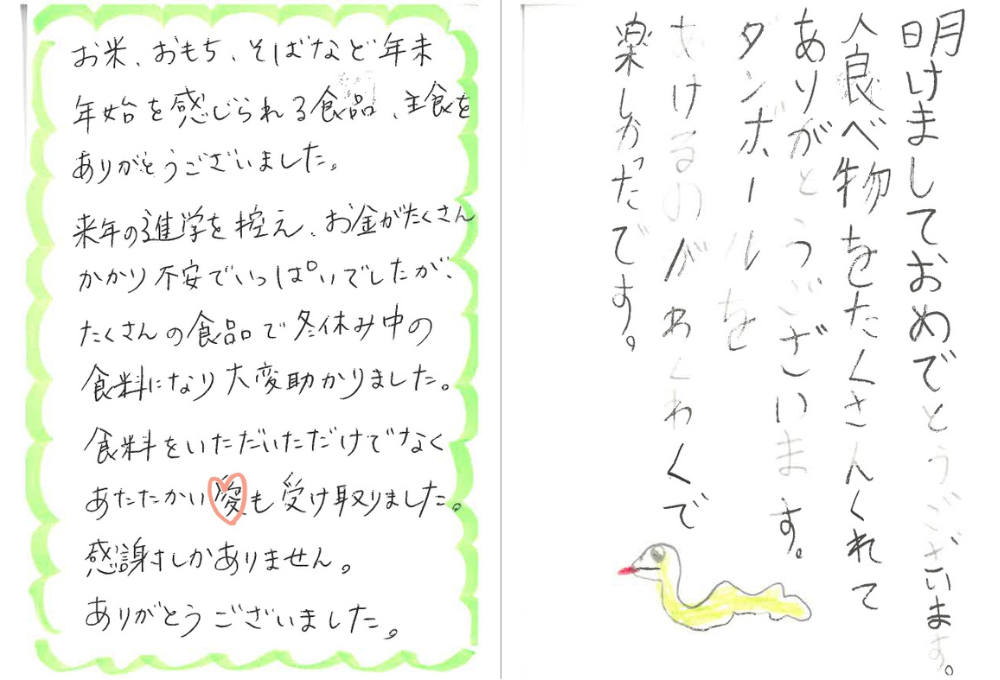 お米、おもち、そばなど年末
年始を感じられる食品、主食を
ありがとうございました。
来年の進学を控え、お金がたくさん
かかり不安でいっぱいでしたが、
たくさんの食品で冬休み中の
食料になり大変助かりました。
食料をいただいただけでなく
あたたかい愛も受け取りました。
感謝しかありません。
ありがとうございました。
明けましておめでとうございます。
食べ物をたくさんくれて
ありがとうございます。
ダンボールを
あけるのがわくわくで
楽しかったです。